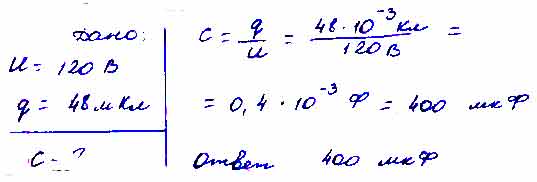 Дано:
U = 120 В
q = 48 мКл
C - ?
C = q/U = 48 · 10⁻³ Кл / 120 В =
= 0,4 · 10⁻³ Ф = 400 мкФ
Ответ 400 мкФ